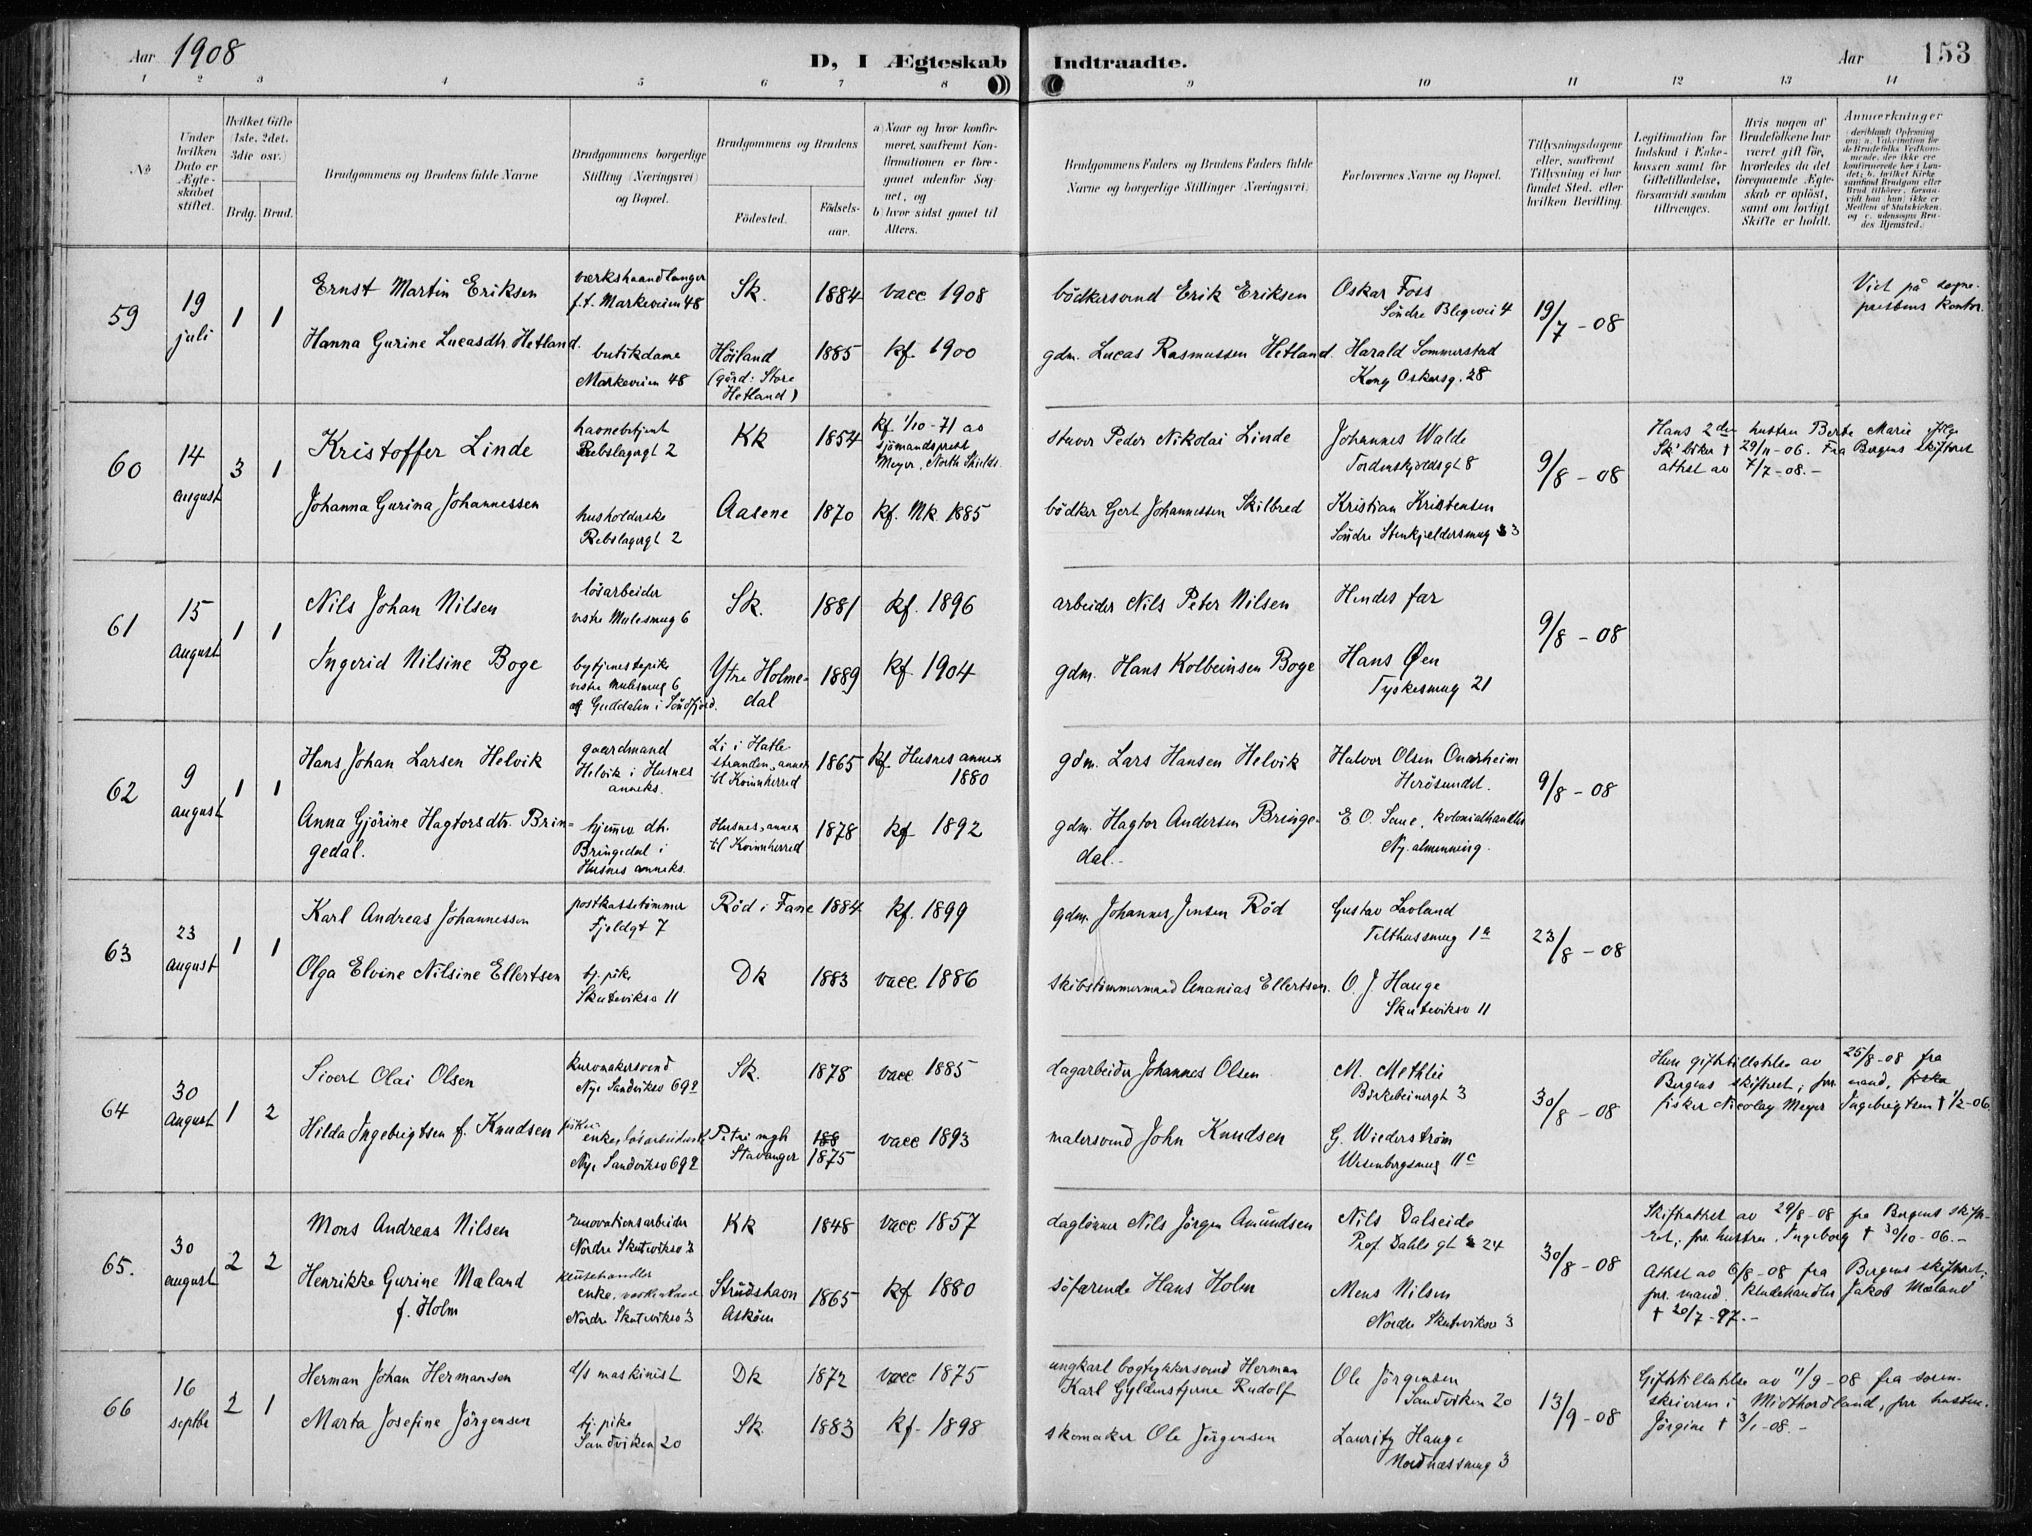 Aar 1908
D, I Ægteskab Indtraadte.
Aar 153
1 2 3 4 5 6 7 8 9 10 11 12 13 14
No
Under hvilken Dato er Ægteskabet stiftet.
Hvilket Gifte (1ste, 2det, 3die osv.)
Brdg. Brud.
Brudgommens og Brudens fulde Navne
Brudgommens borgerlige Stilling (Næringsvei) og Bopæl.
Brudgommens og Brudens
Fødested.
Fødselsaar.
a) Naar og hvor konfirmeret, saafremt Konfirmationen er foregaaet udenfor Sognet, og
b) hvor sidst gaaet til Alters.
Brudgommens Faders og Brudens Faders fulde Navne og borgerlige Stillinger (Næringsvei)
Forlovernes Navne og Bopæl.
Tillysningsdagene eller, saafremt Tillysning ei har fundet Sted, efter hvilken Bevilling.
Legitimation for Indskud i Enkekassen samt for Giftetilladelse, forsaavidt saadan tiltrænges.
Hvis nogen af Brudefolkene har været gift før, hvorledes da det foregaaende Ægteskab er opløst, samt om lovligt Skifte er holdt.
Anmærkninger
59
19 juli
1 1
Ernst Martin Eriksen
værkshaandlanger
f.t. Markeveien 48
Sk. 1884 vacc 1908
bödkersvend Erik Eriksen
Oskar Foss
Söndre Blegevei 4
19/7 - 08
Viet på sogneprestens kontor.
Hanna Gurine Lucasdtr. Hetland.
butikdame
Markeveien 48
Höiland
(gård: Store Hetland)
1885 kf. 1900
gdm. Lucas Rasmussen Hetland.
Harald Sommerstad
Kong Oskarsg. 28
60
14 august
3 1
Kristoffer Linde
havnebetjent
Rebslagergt 2
Kk 1854
kf. 1/10-71 av
sjömandsprest
Meyer, North Shields
stuver Peder Nikolai Linde
Johannes Walde
Tordenskjoldsgt 8
9/8 - 08
Hans 2den hustru Berte Marie
† 29/11-06. Fra Bergens skifteret
attest av 7/7-08.-
Johanna Gurina Johannessen
husholderske
Rebslagergt 2
Aasene 1870 kf. Mk. 1885
bödker Gert Johannessen Skilbred
Kristian Kristensen
Söndre Stenkjeldersmug 3
61
15 august
1 1
Nils Johan Nilsen
lösarbeider
vestre Mulesmug 6
Sk. 1881 kf. 1896
arbeider Nils Peter Nilsen
Hendes far
9/8 - 08
Ingerid Nilsine Boge
bytjenestepike
vestre Mulesmug 6
af Guddalen i Söndfjord.
Ytre Holmedal
1889 kf. 1904
gdm. Hans Kolbeinsen Boge
Hans Øen
Tyskesmug 21
62
9 august
1 1
Hans Johan Larsen Helvik
gaardmand
Helvik i Husnes
anneks.
Li i Hatlestranden, annex
til Kvinnherred
1865
kf. Husnes annex
1880
gdm. Lars Hansen Helvik
Halvor Olsen Onarheim
Herösundet.
9/8 - 08
Anna Gjörine Hagtorsdtr. Bringedal.
hjemev. dtr.
Bringedal i
Husnes anneks.
Husnes, annex
til Kvinnherred
1878 kf. 1892
gdm. Hagtor Andersen Bringedal.-
E. O. Sane, kolonialhandler
Ny. almenning.
63
23 august
1 1
Karl Andreas Johannessen
postkassetömmer
Fjeldgt 7
Röd i Fane 1884 kf. 1899
gdm. Johannes Jensen Röd
Gustav Lavland
Telthussmug 1a
23/8 - 08
Olga Elvine Nilsine Ellertsen
tj. pike
Skutevikso 11
Dk 1883 vacc 1886
skibstömmermand Ananias Ellertsen.
O. J Hauge
Skutevikso 11
64
30 August
1 2
Sivert Olai Olsen
kurvmakersvend
Nye Sandvikso 692
Sk. 1878 vacc 1885
dagarbeider Johannes Olsen
M. Methlie
Birkebeinergt 3
30/8 - 08
Hun giftetilladelse av 25/8-08 fra
Bergens skifteret; for. mand, fiske
fisker Nicolay Meyer Ingebrigtsen † 1/2-06.
Hilda Ingebrigtsen f. Knudsen
enke, lösarbeidersk
Nye Sandvikso 692
Petri mgh
Stavanger
188
1875
vacc 1893
malersvend John Knudsen
G. Wiederström
Wesenbergsmug 11c
65.
30 august
2 2
Mons Andreas Nilsen
renovationsarbeider
Nordre Skutevikso 3
Kk 1848 vacc 1857
daglönner Nils Jörgen Amundsen
Nils Dalseide
Prof. Dahls gt 24
30/8 - 08
Skifteattest av 29/8-08 fra Bergens skifteret; for. hustru, Ingeborg † 30/10-06.-
Attest av 6/8-08 fra Bergens skifteret;
for. mand, kludehandler Jakob Mæland
† 20/7-97.-
Henrikke Gurine Mæland
f. Holm
kludehandler
enke,
Nordre Skutevikso 3
Strudshavn
Asköen
1865 kf 1880
söfarende Hans Holm
Mons Nilsen
Nordre Skutevikso 3
66
16 septbr
2 1
Herman Johan Hermansen
d/s maskinist
Dk 1872 vacc 1875
ungkarl bogtrykkersvend Herman
Karl Gyldenstjerne Rudolf
Ole Jörgensen
Sandviken 20
13/9 - 08
Giftetilladelse av 11/9-08 fra sorenskriveren i Midthordland, for. hustru.
Jörgine † 3/1-08.-
Marta Josefine Jörgensen
tj. pike
Sandviken 20
Sk. 1883 kf. 1898
skomaker Ole Jörgensen
Lauritz Hauge
Nordnæssmug 3